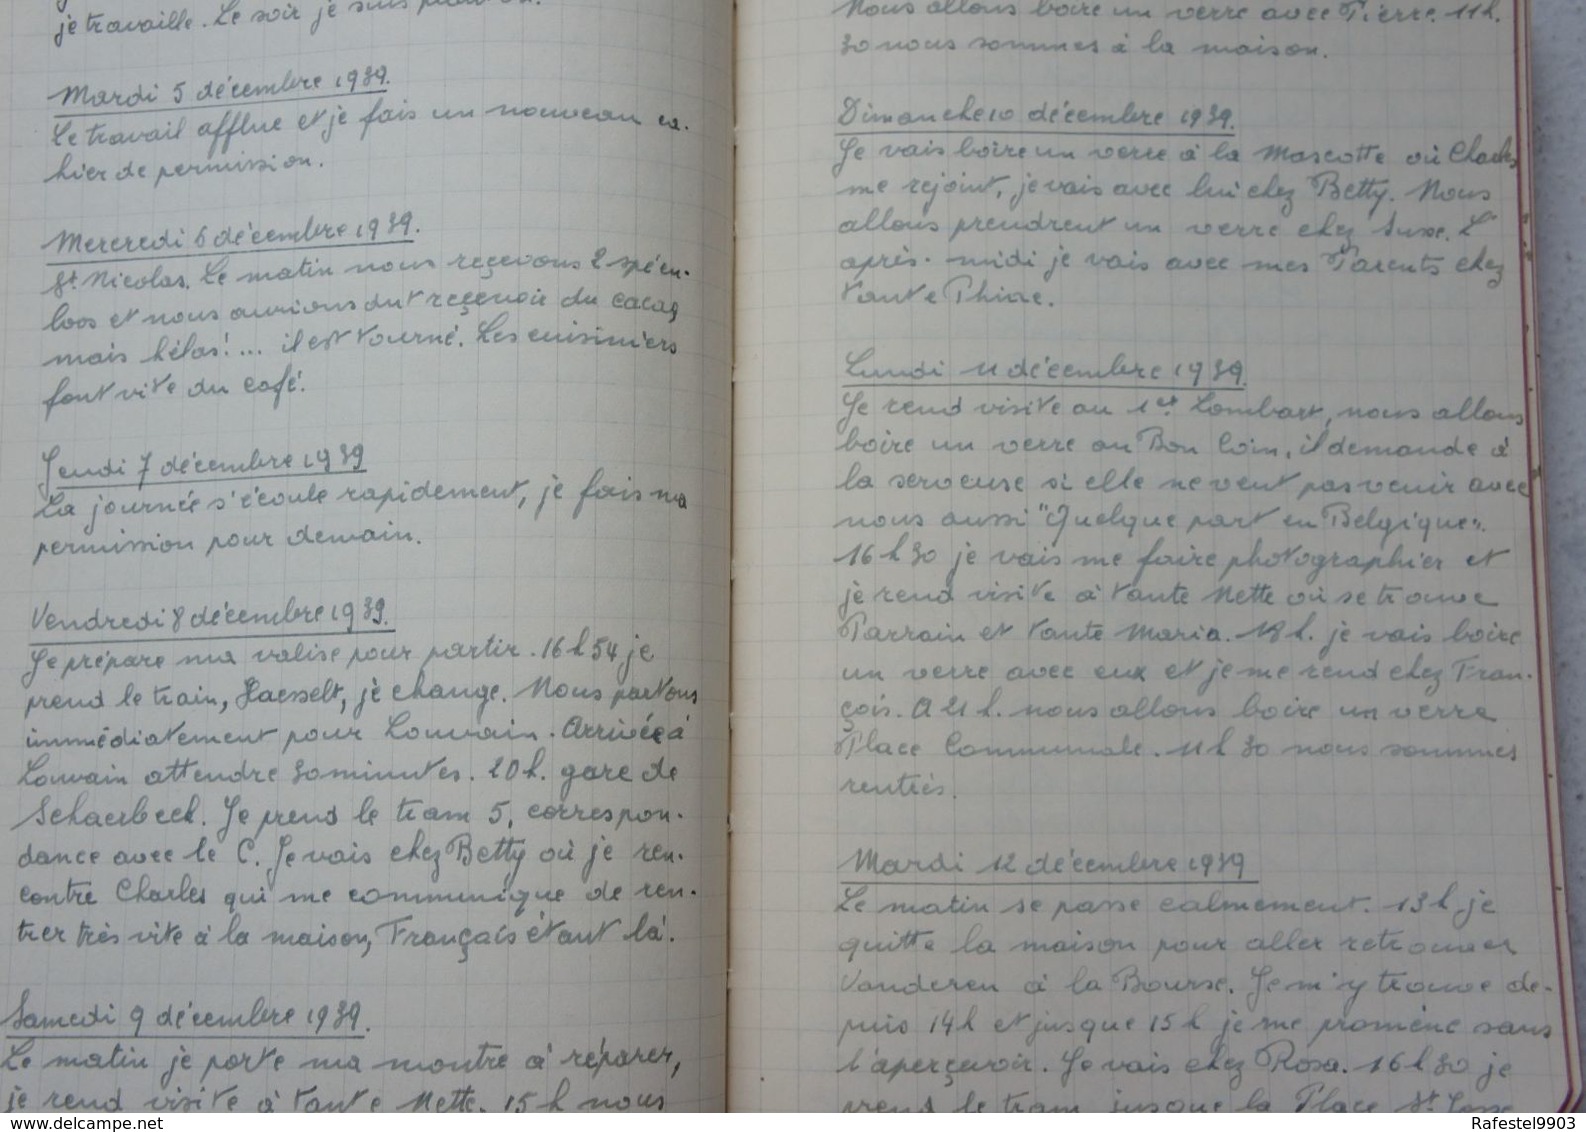 je travaille. Le soir je suis
Mardi 5 décembre 1939.
Le travail afflue et je fais un nouveau ca-
hier de permission.
Mercredi 6 décembre 1939.
St Nicolas. Le matin nous reçevons 2 spécu-
loos et nous aurions dut reçevoir du cacao,
mais hélas!... il est tourné. Les cuisiniers
font vite du café.
Jeudi 7 décembre 1939
La journée s'écoule rapidement, je fais ma
permission pour demain.
Vendredi 8 décembre 1939.
Je prépare ma valise pour partir. 16 h 54 je
prend le train, Haesselt, je change. Nous partons
immédiatement pour Louvain. Arrivée à
Louvain attendre 30 minutes. 20 h. gare de
Schaerbeek. Je prend le tram 5, correspon-
dance avec le C. Je vais chez Betty où je ren-
contre Charles qui me communique de ren-
trer très vite à la maison, François étant là.
Samedi 9 décembre 1939.
Le matin je porte ma montre à réparer,
je rend visite à tante Nette. 15 h nous
Nous allons boire un verre avec Pierre. 11 h.
30 nous sommes à la maison.
Dimanche 10 décembre 1939.
Je vais boire un verre à la Mascotte où Charles
me rejoint, je vais avec lui chez Betty. Nous
allons prendrent un verre chez Susse. L'
après-midi je vais avec mes Parents chez
tante Phine.
Lundi 11 décembre 1939.
Je rend visite au 1er Lombart, nous allons
boire un verre au Bon Coin, il demande à
la serveuse si elle ne veut pas venir avec
nous aussi "Quelque part en Belgique".
16 h 30 je vais me faire photographier et
je rend visite à tante Nette où se trouve
Parrain et tante Maria. 18 h. je vais boire
un verre avec eux et je me rend chez Fran-
çois. A 21 h. nous allons boire un verre
Place Communale. 11 h 30 nous sommes
rentrés.
Mardi 12 décembre 1939
Le matin se passe calmement. 13 h je
quitte la maison pour aller retrouver
Vanderen à la Bourse. Je m'y trouve de-
puis 14 h et jusque 15 h je me promène sans
l'aperçevoir. Je vais chez Rosa. 16 h 30 je
prend le tram jusque la Place St Josse
www.delcampe.net
Rafestel9903